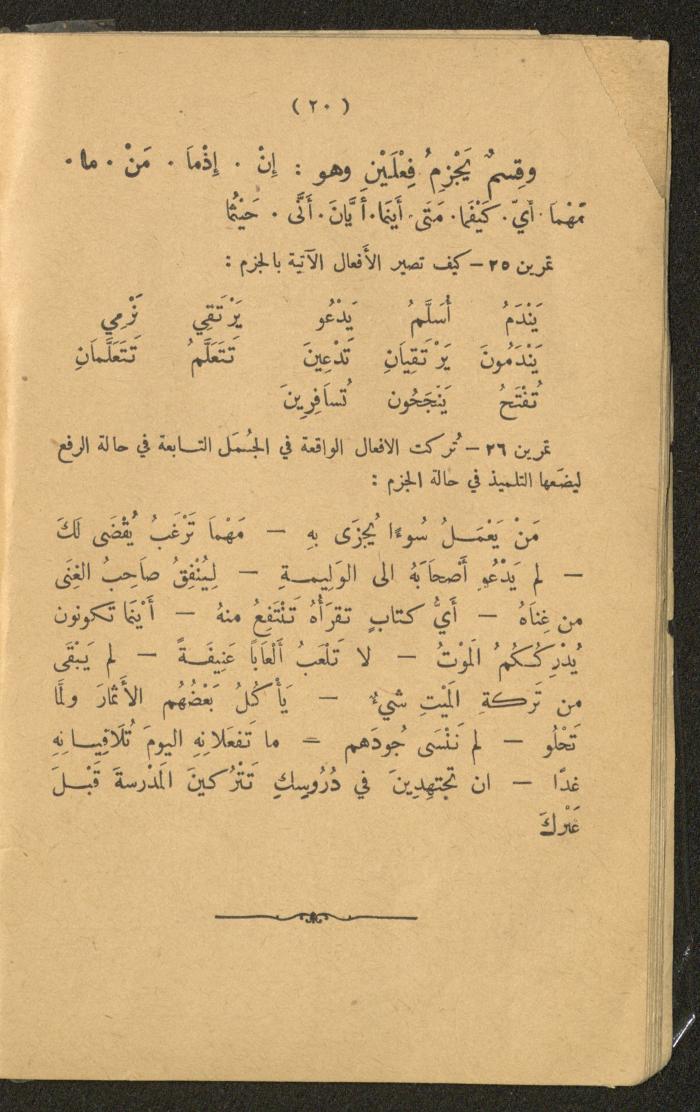 ( ٢٠ )
وقِسمٌ يَجْزِمُ فِعْلَيْنِ وهو : إِنْ . إِذْمَا . مَنْ . ما .
مَهْمَا . أَيّ . كَيْفَمَا . مَتَى . أَيْنَمَا . أَيَّانَ . أَنَّى . حَيْثُمَا
تمرين ٢٥ – كيف تصير الأَفعال الآتية بالجزم :
يَنْدَمُ أُسَلَّمُ يَدْعُو يَرْتَقِي نَرْمِي
يَنْدَمُونَ يَرْتَقِيَانِ تَدْعِينَ تَتَعَلَّمُ تَتَعَلَّمَانِ
تُفْتَحُ يَنْجَحُون تُسَافِرِينَ
تمرين ٢٦ – تُركت الافعال الواقعة في الجُمَل التـابعة في حالة الرفع
ليضَعها التلميذ في حالة الجزم :
مَنْ يَعْمَـلُ سُوءًا يُجزَى بِهِ – مَهْمَا تَرْغَبُ يُقْضَى لَكَ
– لم يَدْعُو أَصْحَابَهُ الى الوَلِيمـةِ – لِيُنْفِقُ صَاحِبُ الغِنَى
من غِنَاهُ – أَيُّ كتابٍ تقرَأُهُ تَنْتَفِعُ منهُ – أَيْنَمَا تكونون
يُدْرِكُكُمُ المَوْتُ – لا تَلْعَبُ أَلْعَابًا عَنِيفَـةً – لم يَبْقَى
من تَرِكةِ المَيْتِ شيءٌ – يَأْكُلُ بَعْضُهُم الأَثمَارَ ولمَّا
تَحْلُو – لم نَنْسَى جُودَهم – ما تَفعَلانِهِ اليومَ تُلَاقِيـانِهِ
غدًا – ان تجتهِدِينَ في دُرُوسِكِ تَتْرُكينَ المَدْرسةَ قَبْـلَ
غَيْرِكَ